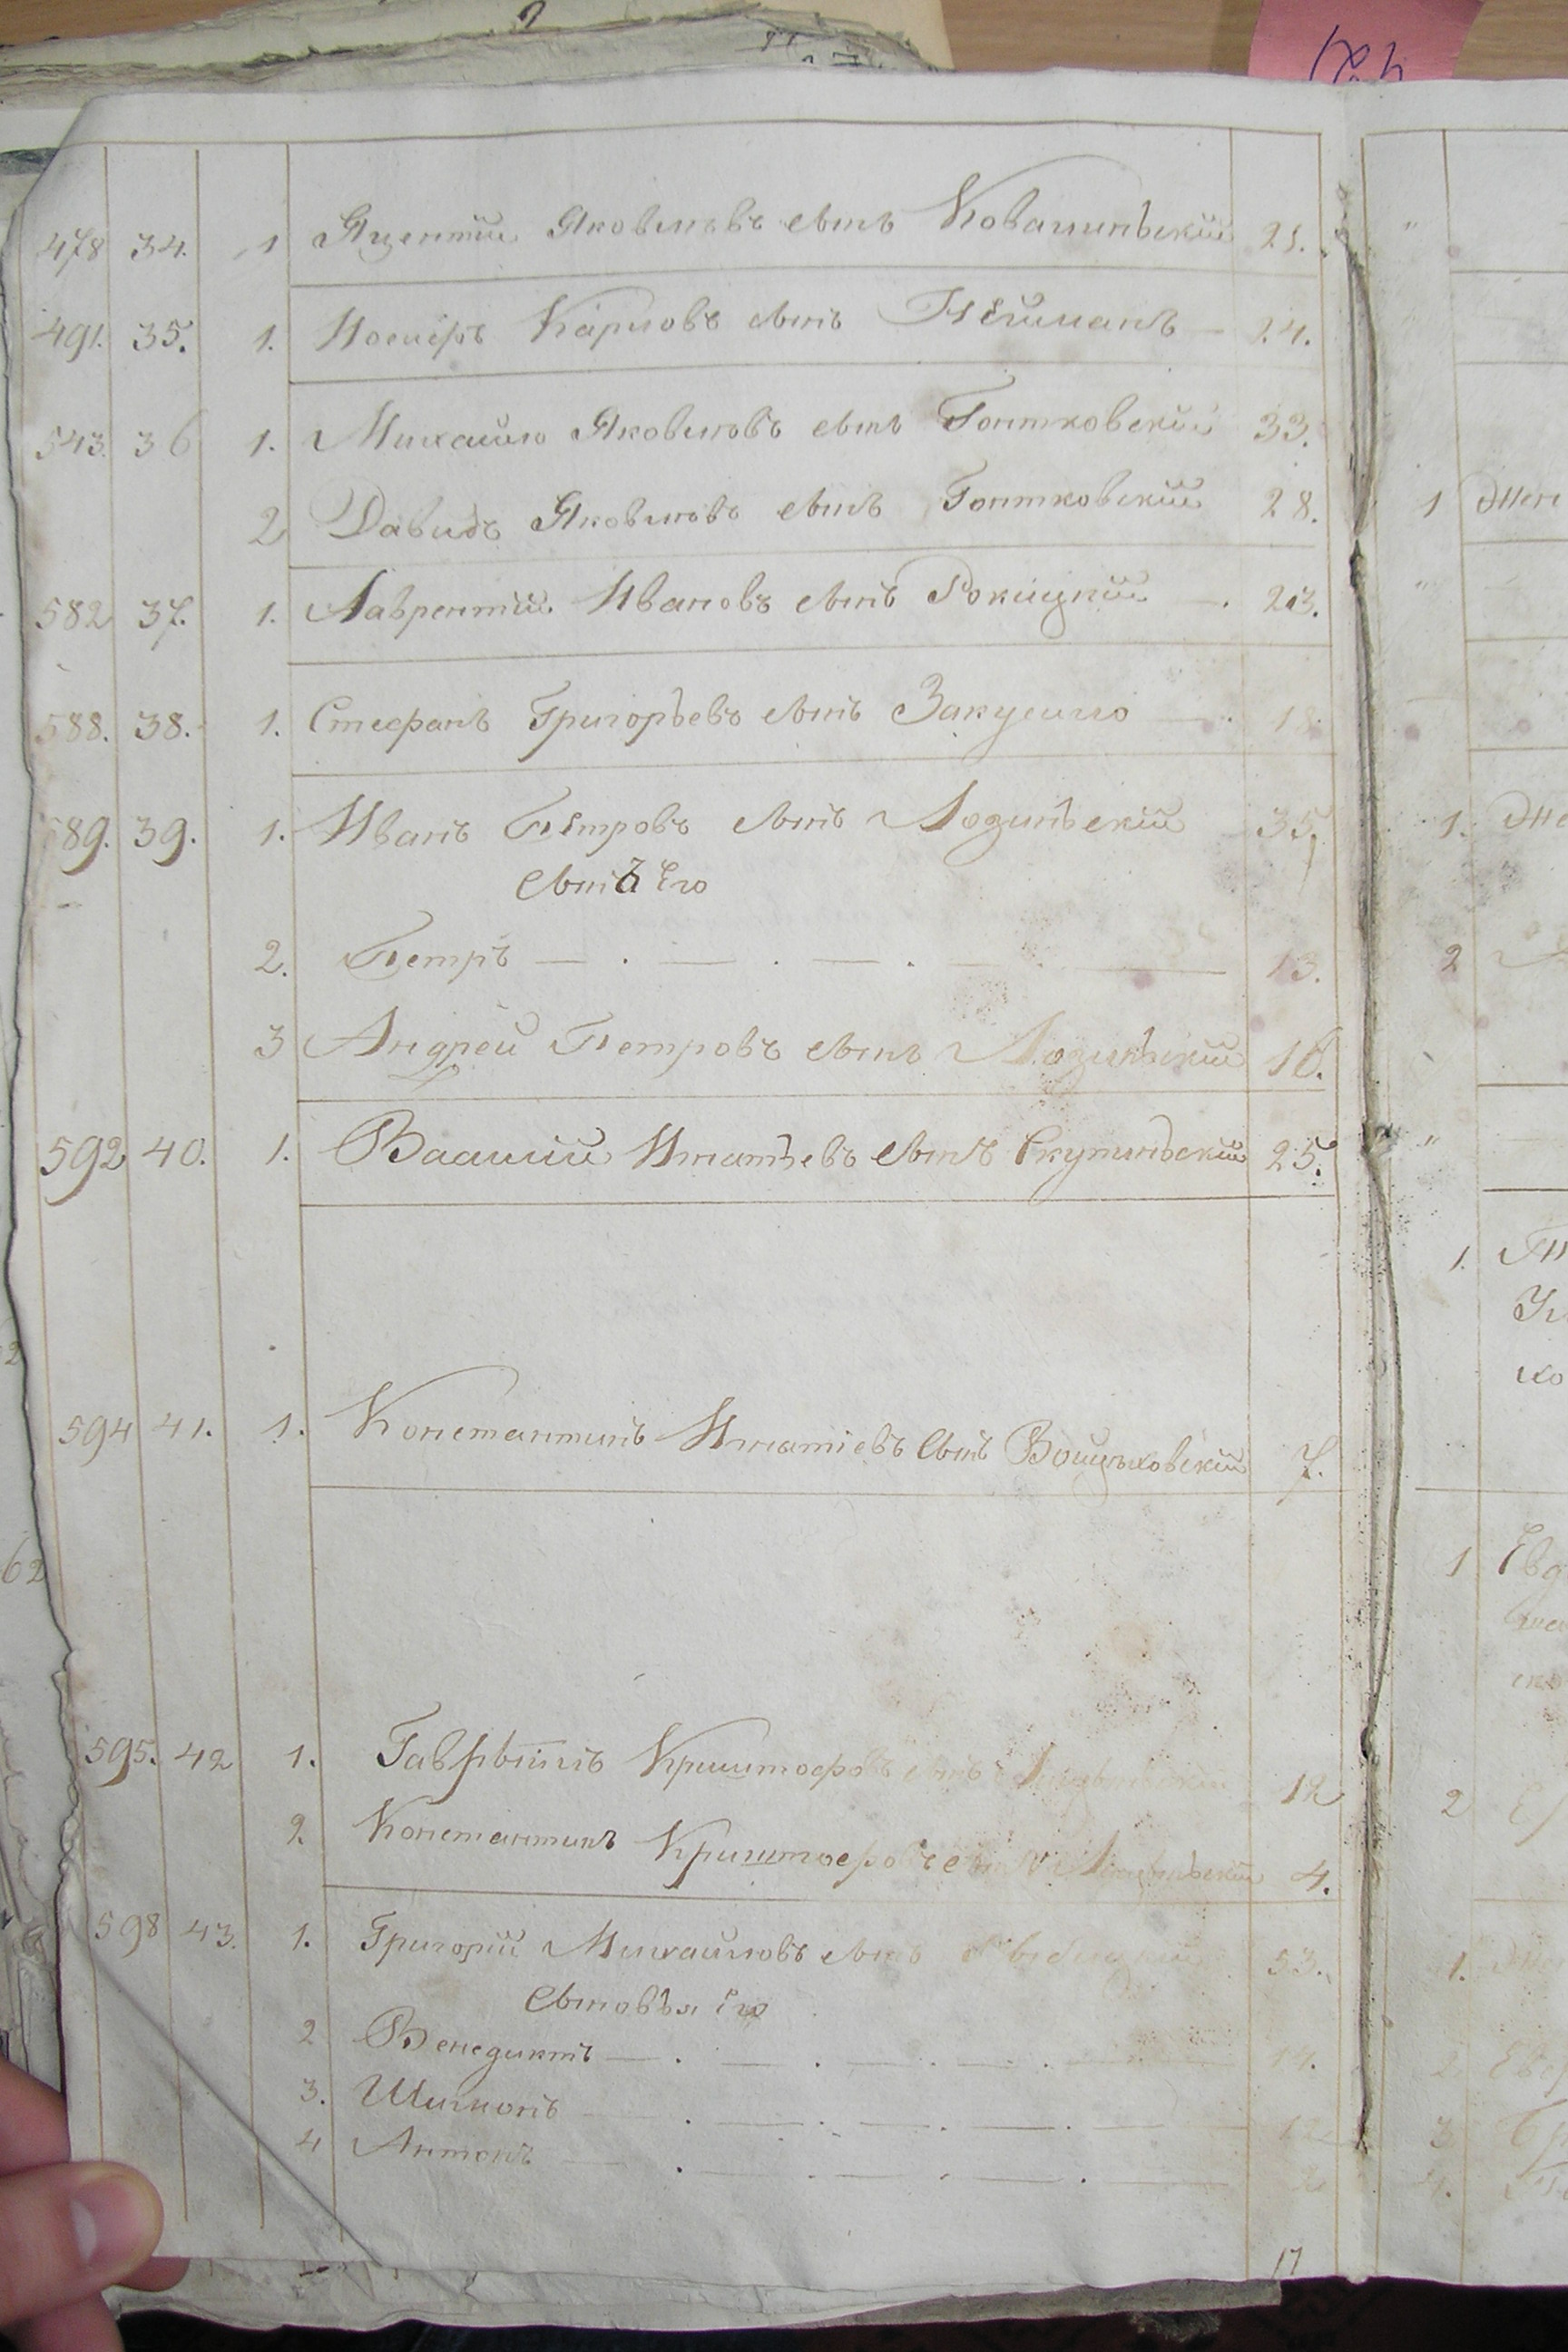 478 34. 1 Яцентій Яковлевъ сынъ Ковалинскій 21.
491. 35. 1. Іосифъ Карловъ сынъ Нейманъ — 24.
543. 36 1. Михайло Яковлевъ сынъ Гонтковскій 33.
2 Давидъ Яковлевъ сынъ Гонтковскій 28.
582 37. 1. Лаврентій Ивановъ сынъ Рокицкій — . 23.
588. 38. 1. Стефанъ Григорьевъ сынъ Закусило — . 18
589. 39. 1. Иванъ Петровъ сынъ Лозинскій 35.
сынъ Его
2. Петръ — . — . — . — . — 13.
3 Андрей Петровъ сынъ Лозинскій 16.
592 40. 1. Василій Игнатьевъ сынъ 25.
594 41. 1. Константинъ Игнатіевъ Сынъ Войцеховскій 7.
595. 42 1. Гавріилъ Криштофовъ сынъ 12
2. Константинъ Криштофовъ сынъ 4.
598 43. 1. Григорій Михайловъ сынъ 53.
Сыновья Его
2 Венедиктъ — . — . — . — . —
3. Шимконъ — . — . — . — . — 12
4 Антонъ — . — . — . — . — 2
17